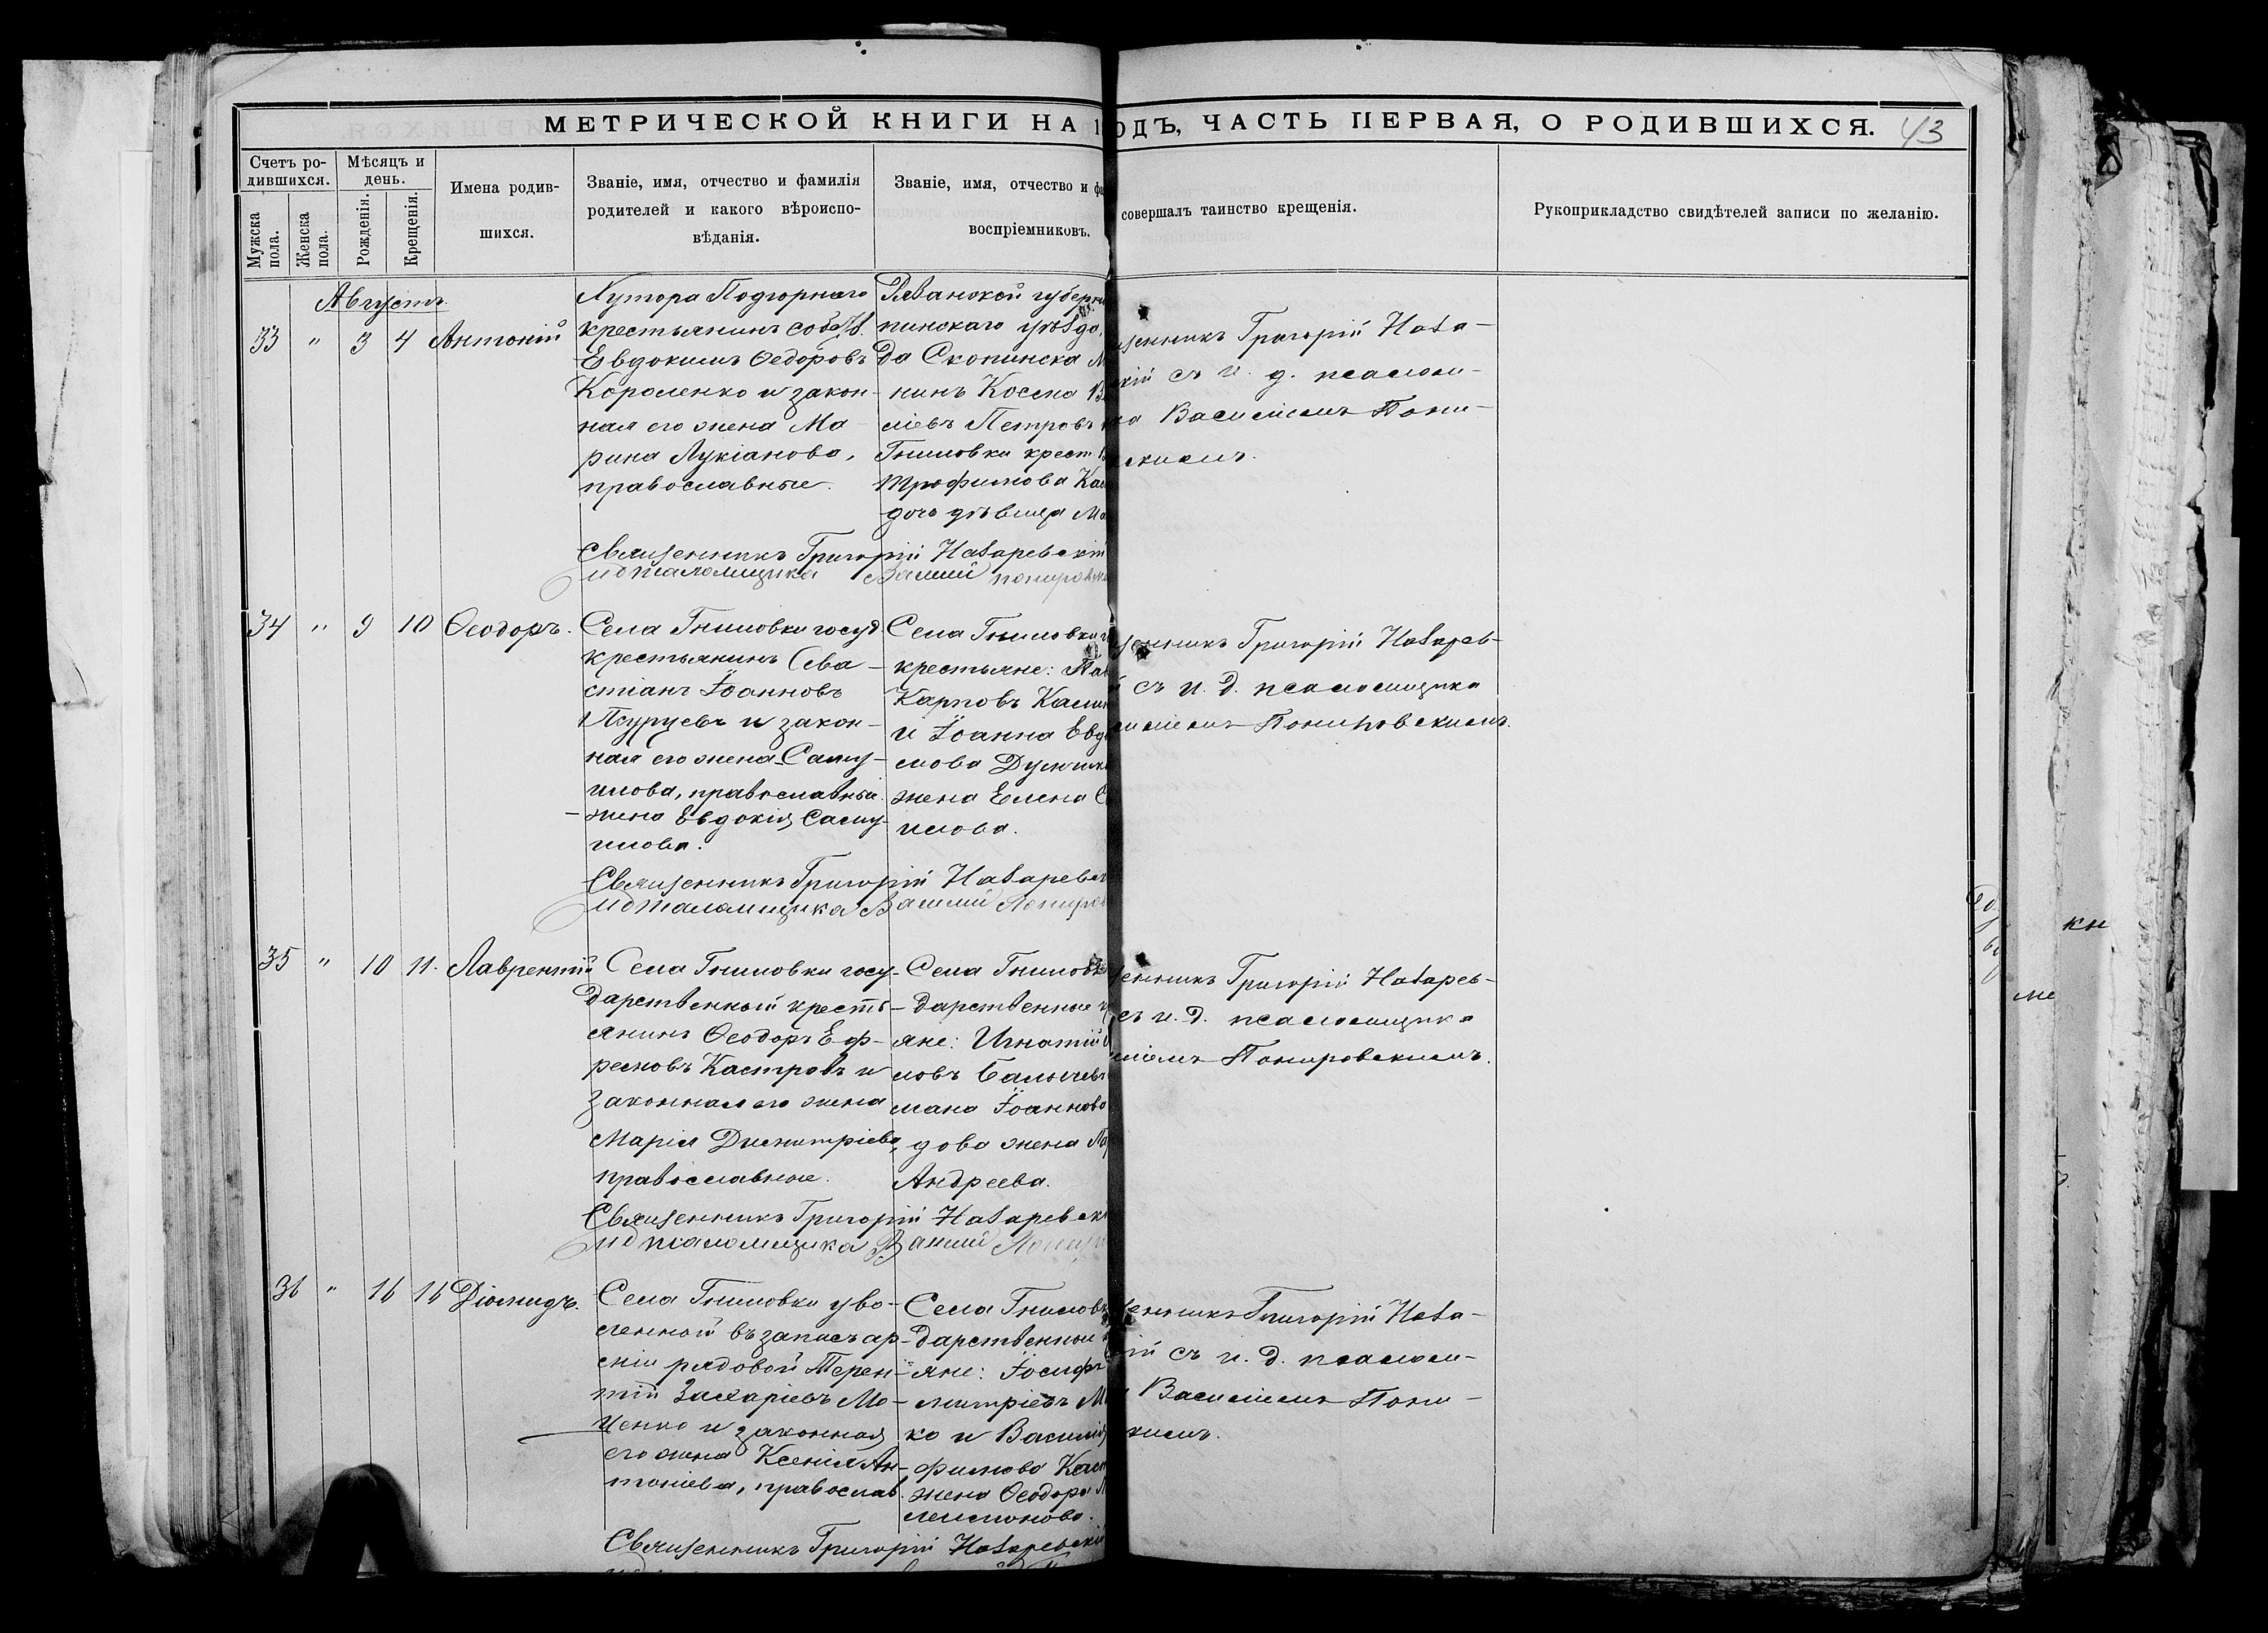 МЕТРИЧЕСКОЙ КНИГИ НА 1 ОДЪ, ЧАСТЬ ПЕРВАЯ, О РОДИВШИХСЯ. 43
Счетъ ро-
дившихся.
Мужска
пола.
Женска
пола.
Мѣсяцъ и
день.
Рожденія.
Крещенія.
Имена родив-
шихся.
Званіе, имя, отчество и фамилія
родителей и какого вѣроиспо-
вѣданія.
Званіе, имя, отчество и фа
воспріемниковъ.
совершалъ таинство крещенія.
Рукоприкладство свидѣтелей записи по желанію.
Августъ
33 " 3 4 Антоній
Хутора Подгорнаго
крестьянинъ собств.
Евдокимъ Ѳедоровъ
Короленко и закон-
ная его жена Ма-
рина Лукіанова,
православные.
Рязанской губерн
пинскаго уѣзда,
да Скопинска М
нинъ Косма В
ліевъ Петровъ
Гниловки крест
Трофимова Ка
дочь дѣвица Ма
щенникъ Григорій Наза-
кій съ и. д. псаломщ-
ка Василіемъ Пони-
скимъ.
Священникъ Григорій Назаревскій
ид псаломщика Василій Пониров
34 " 9 10 Ѳеодоръ.
Села Гниловки госуд.
крестьянинъ Сева-
стіанъ Іоанновъ
и закон-
ная его жена Саму-
илова, православные.
жена Евдокія Саму-
илова.
Села Гниловки г
крестьяне: Пав
Карповъ Калин
и Іоанна Евд
мова
жена Елена С
илова.
щенникъ Григорій Назарев-
й съ и. д. псаломщика
силіемъ Понировскимъ.
Священникъ Григорій Назаревск
ид псаломщика Василій Пониров
35 " 10 11. Лаврентій
Села Гниловки госу-
дарственный кресть-
янинъ Ѳеодоръ Еф-
ремовъ Кастровъ и
законная его жена
Марія Димитріева,
православные.
Села Гниловк
дарственные к
яне: Игнатій
ловъ Балычевъ
мана Іоаннова
дова жена Па
Андреева.
щенникъ Григорій Назарев-
съ и. д. псаломщика
силіемъ Понировскимъ.
Священникъ Григорій Назаревск
ид псаломщика Василій Пониро
36 " 16 16 Діомидъ.
Села Гниловки уво-
ленной въ запасъ ар-
міи рядовой Терен-
тій Захаріевъ Мо-
ценко и законная
его жена Ксенія Ан-
тоніева, православ.
Села Гниловк
дарственные к
яне: Іосифъ
митріевъ М
ко и Василія
фимова Кал
жена Ѳеодора
лимонова.
щенникъ Григорій Наза-
кій съ и. д. псаломщ-
Василіемъ Пони-
скимъ.
Священникъ Григорій Назаревскій